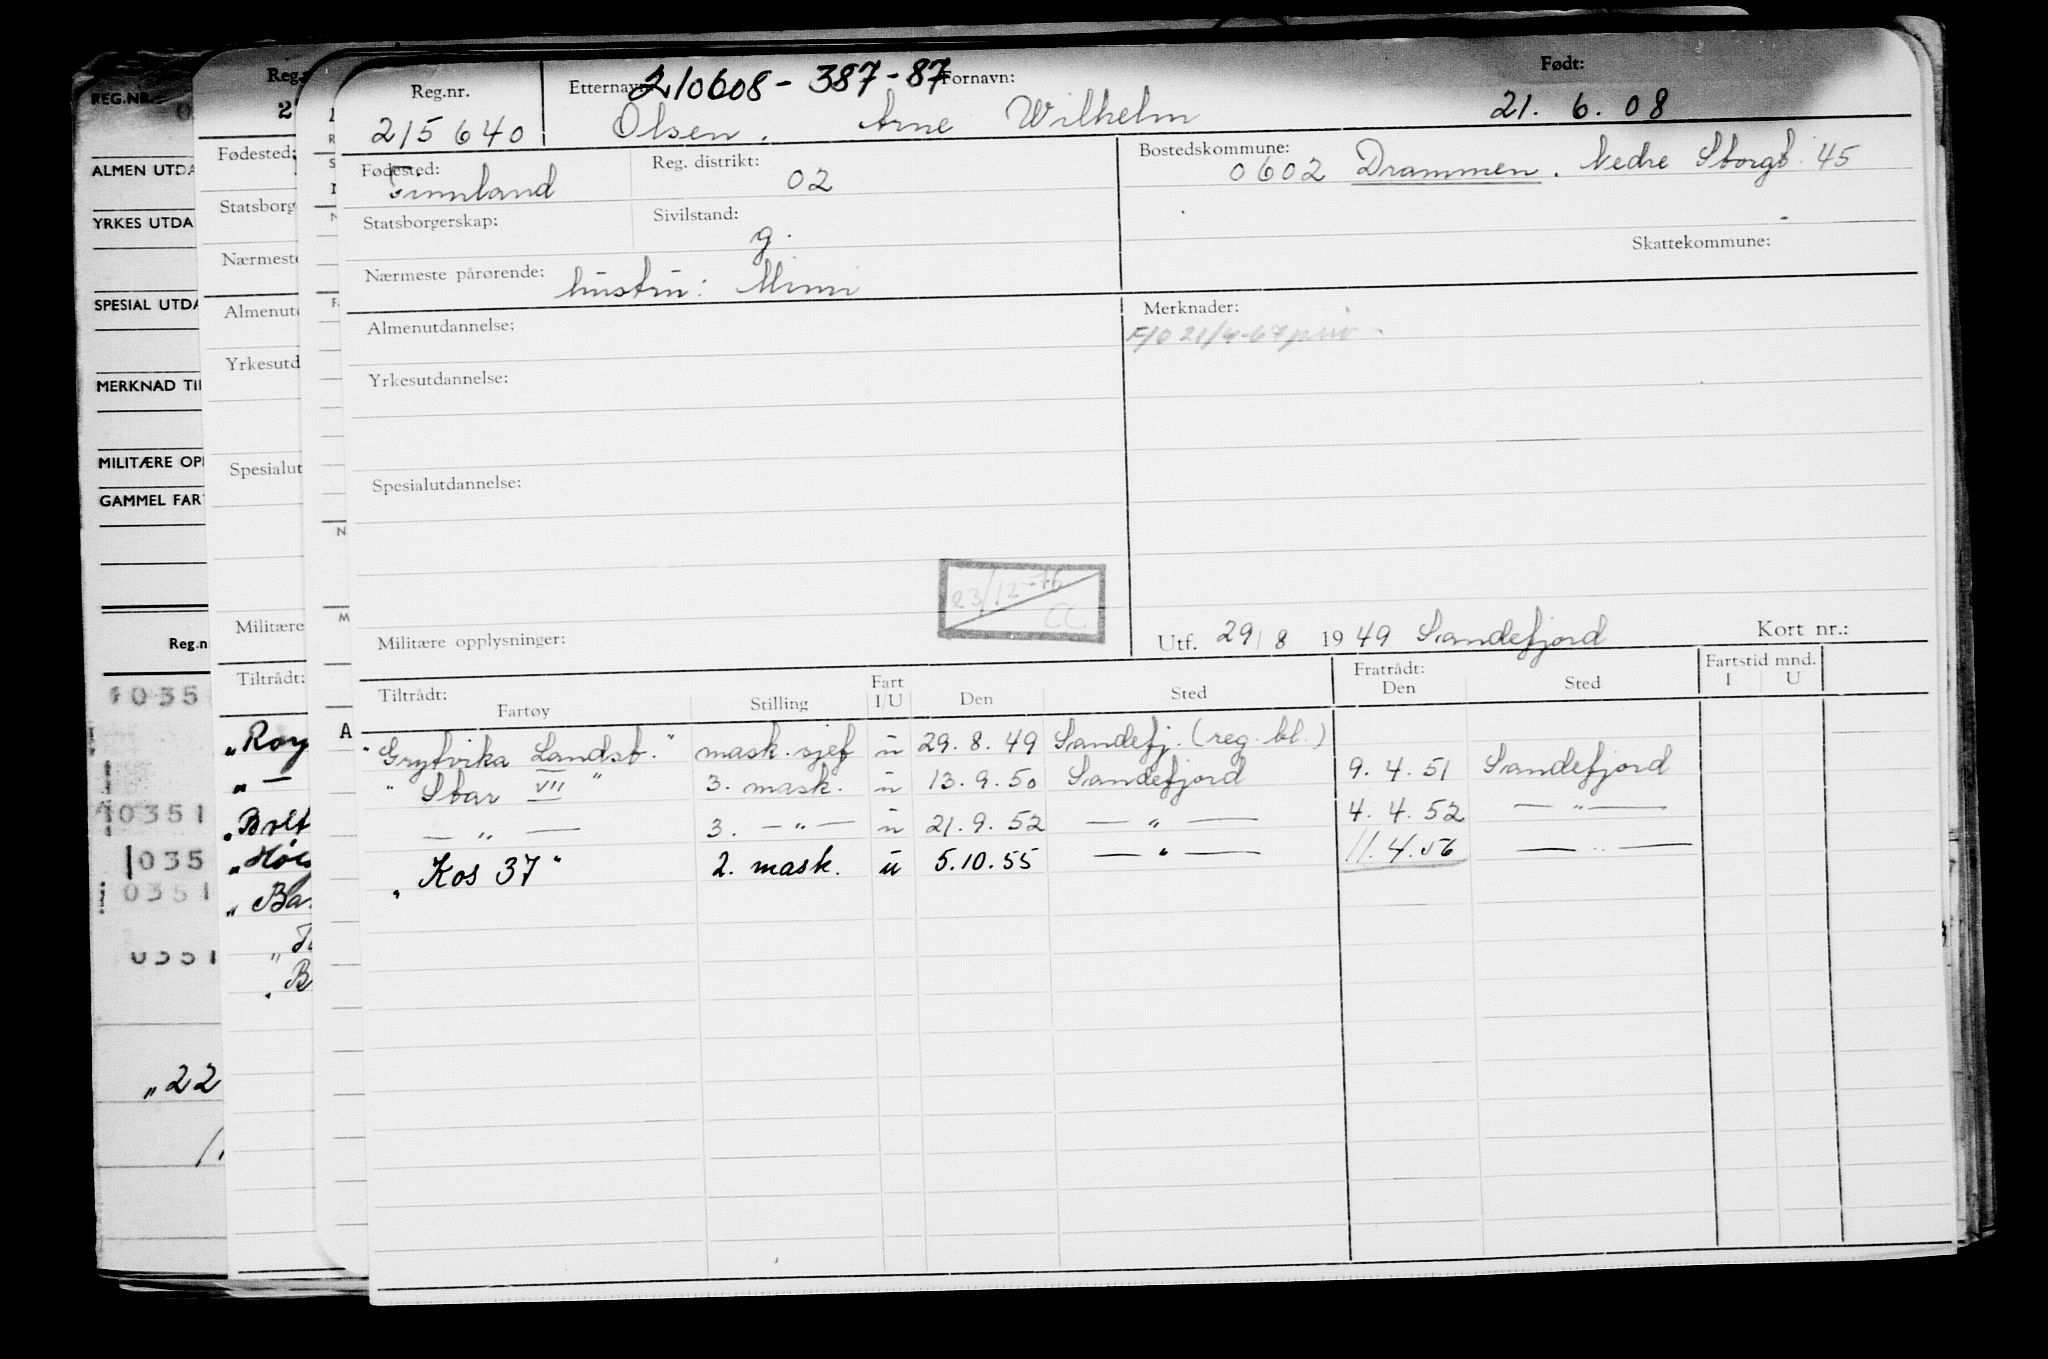 REG.NR.
ALMEN UTDA
YRKES UTDA
SPESIAL UTDA
MERKNAD TIL
MILITÆRE OPP
GAMMEL FART
Reg.n
0351
0351
0351
0351
„22
Reg.
Fødested:
Statsborg
Nærmeste
Almenutd
Yrkesutd
Spesialut
Militære
Tiltrådt:
„Roy
„ —
„Bolt
„Ba
A
Reg.nr. Etternavn: 210608-387-87 Fornavn: Født:
215640 Olsen, Arne Wilhelm 21. 6. 08
Fødested: Finnland Reg. distrikt: 02 Bostedskommune: 0602 Drammen. Nedre Storgt. 45
Statsborgerskap: Sivilstand: g. Skattekommune:
Nærmeste pårørende: hustru: Mimi
Almenutdannelse: Merknader:
F/O 21/4-67
Yrkesutdannelse:
Spesialutdannelse:
23/12-76
CC
Militære opplysninger: Utf. 29/8 1949 Sandefjord Kort nr.:
Tiltrådt: Fart Fratrådt: Fartstid mnd.
Fartøy Stilling I/U Den Sted Den Sted I U
"Grytvika Landst." mask.sjef u 29. 8. 49 Sandefj. (reg. bl.)
" Star VII " 3. mask. u 13. 9. 50 Sandefjord 9. 4. 51 Sandefjord
— „ — 3. — „ — u 21. 9. 52 — „ — 4. 4. 52 — „ —
„ Kos 37 " 2. mask. u 5.10.55 — „ — 11. 4. 56 — „ —